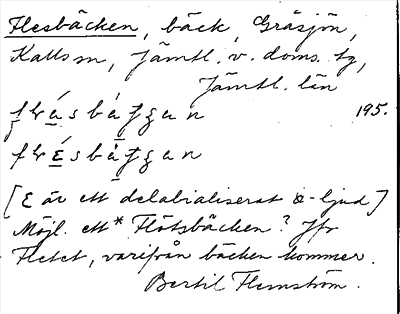 Flesbäcken, bäck, Gråsjön,
Kall sn, Jämtl. v. doms. tg,
Jämtl. län
195.
[ɛ är ett delabialiserat ö-ljud]
Möjl. ett * Flötsbäcken? Jfr
Fletet, varifrån bäcken kommer.
Bertil Flemström.